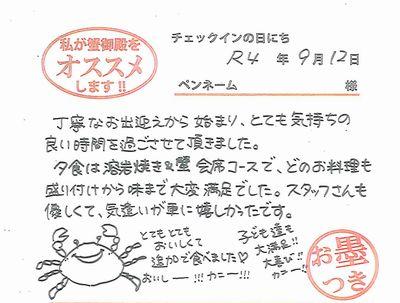 私が蟹御殿を
オススメ
します!!
チェックインの日にち
R4 年 9月 12日
ペンネーム 様
丁寧なお出迎えから 始まり、とても気持ちの
良い時間を過ごさせて頂きました。
夕食は溶岩焼き&蟹 会席コースで、どのお料理も
盛り付けから味まで大変 満足でした。スタッフさんも
優しくて、気遣いが車に嬉しかったです。
とてもとても
おいしくて
追加で食べました♡
おいしー!!! カニー!!!
子ども達も
大満足!!
大喜び!!
カニー!!
お墨
つき